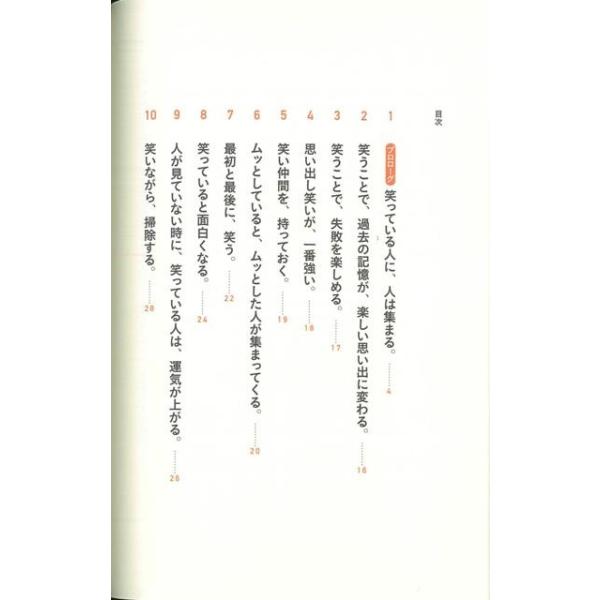 目次
1 プロローグ 笑っている人に、人は集まる。………4
2 笑うことで、過去の記憶が、楽しい思い出に変わる。………16
3 笑うことで、失敗を楽しめる。………17
4 思い出し笑いが、一番強い。………18
5 笑い仲間を、持っておく。………19
6 ムッとしていると、ムッとした人が集まってくる。………20
7 最初と最後に、笑う。………22
8 笑っていると面白くなる。………24
9 人が見ていない時に、笑っている人は、運気が上がる。………26
10 笑いながら、掃除する。………28